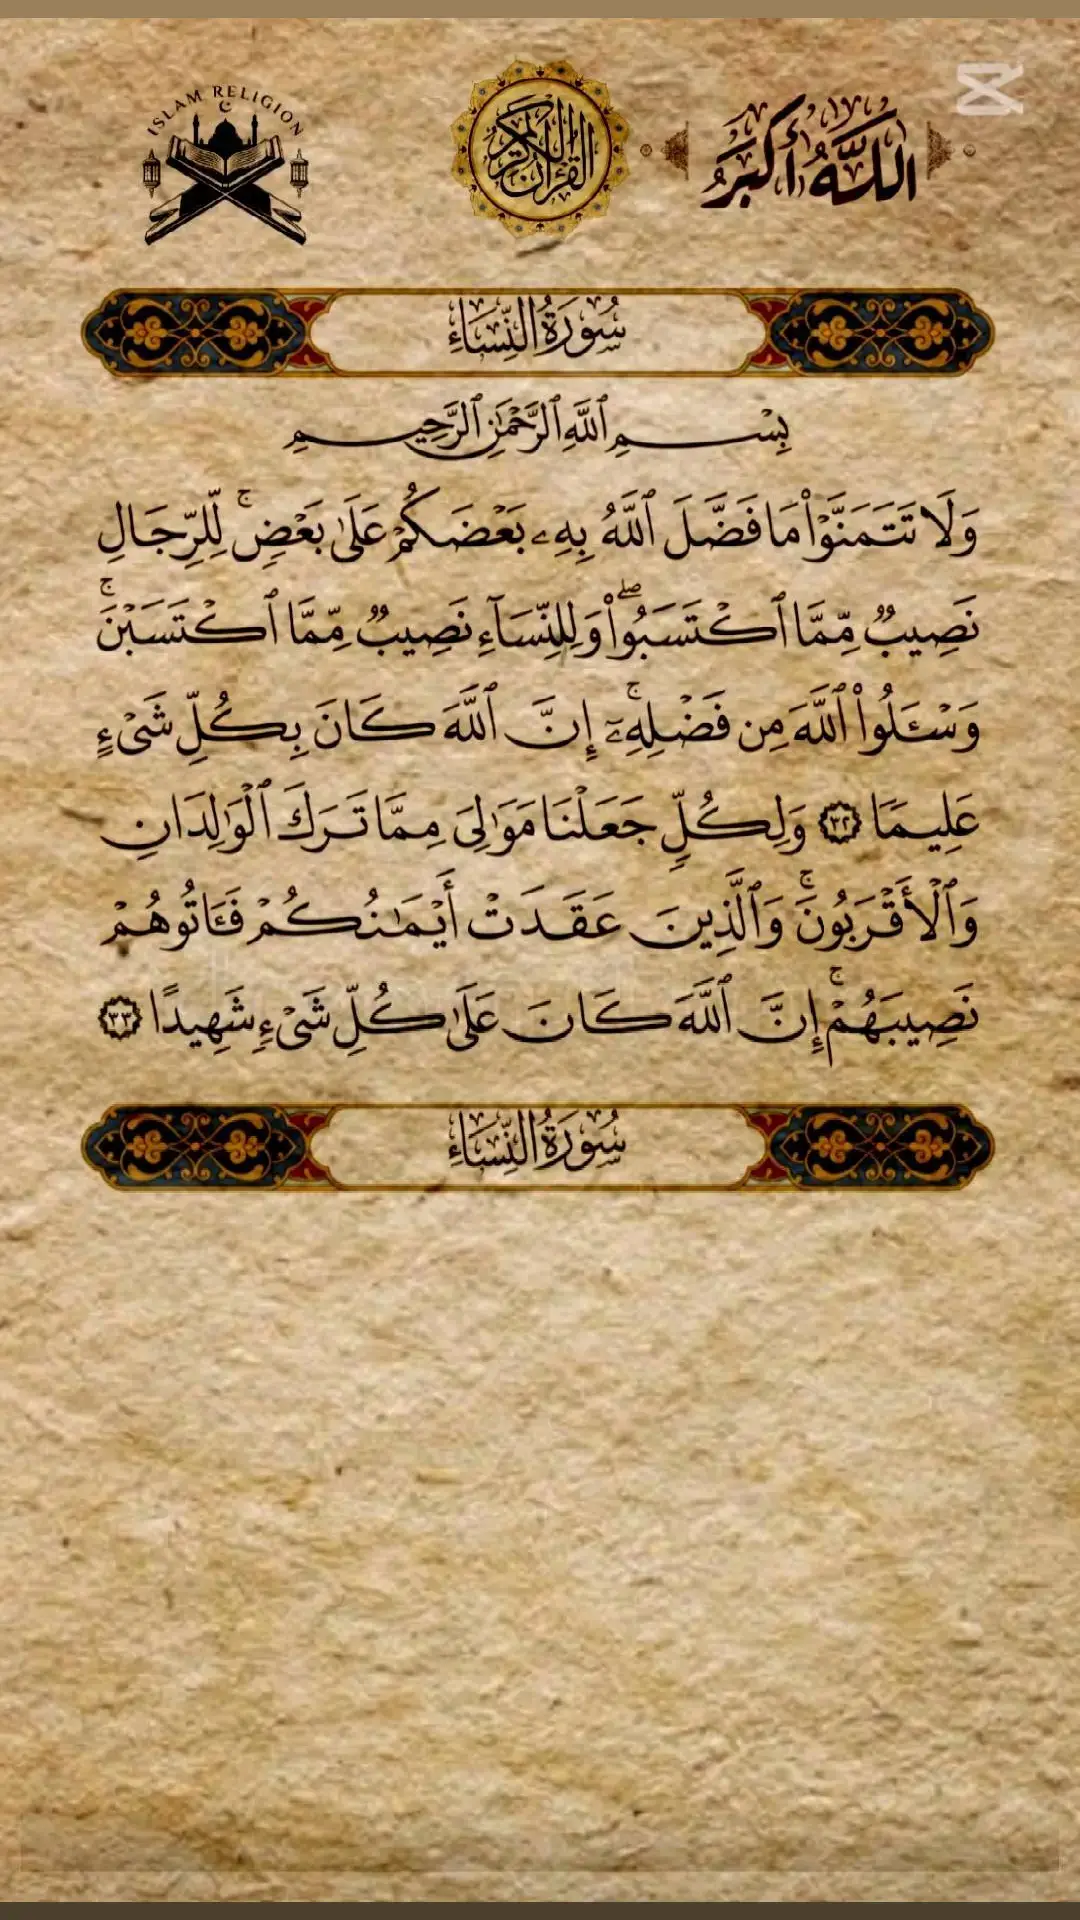 ISLAM RELIGION
القرآن الكريم
اللَّهُ أَكْبَرُ
سُورَةُ النِّسَاءِ
بِسْمِ ٱللَّهِ ٱلرَّحْمَٰنِ ٱلرَّحِيمِ
وَلَا تَتَمَنَّوْا۟ مَا فَضَّلَ ٱللَّهُ بِهِۦ بَعْضَكُمْ عَلَىٰ بَعْضٍ ۚ لِّلرِّجَالِ
نَصِيبٌ مِّمَّا ٱكْتَسَبُوا۟ ۖ وَلِلنِّسَآءِ نَصِيبٌ مِّمَّا ٱكْتَسَبْنَ ۚ
وَسْـَٔلُوا۟ ٱللَّهَ مِن فَضْلِهِۦٓ ۚ إِنَّ ٱللَّهَ كَانَ بِكُلِّ شَىْءٍ
عَلِيمًا ٣٢ وَلِكُلٍّ جَعَلْنَا مَوَٰلِىَ مِمَّا تَرَكَ ٱلْوَٰلِدَانِ
وَٱلْأَقْرَبُونَ ۚ وَٱلَّذِينَ عَقَدَتْ أَيْمَـٰنُكُمْ فَـَٔاتُوهُمْ
نَصِيبَهُمْ ۚ إِنَّ ٱللَّهَ كَانَ عَلَىٰ كُلِّ شَىْءٍ شَهِيدًا ٣٣
سُورَةُ النِّسَاءِ